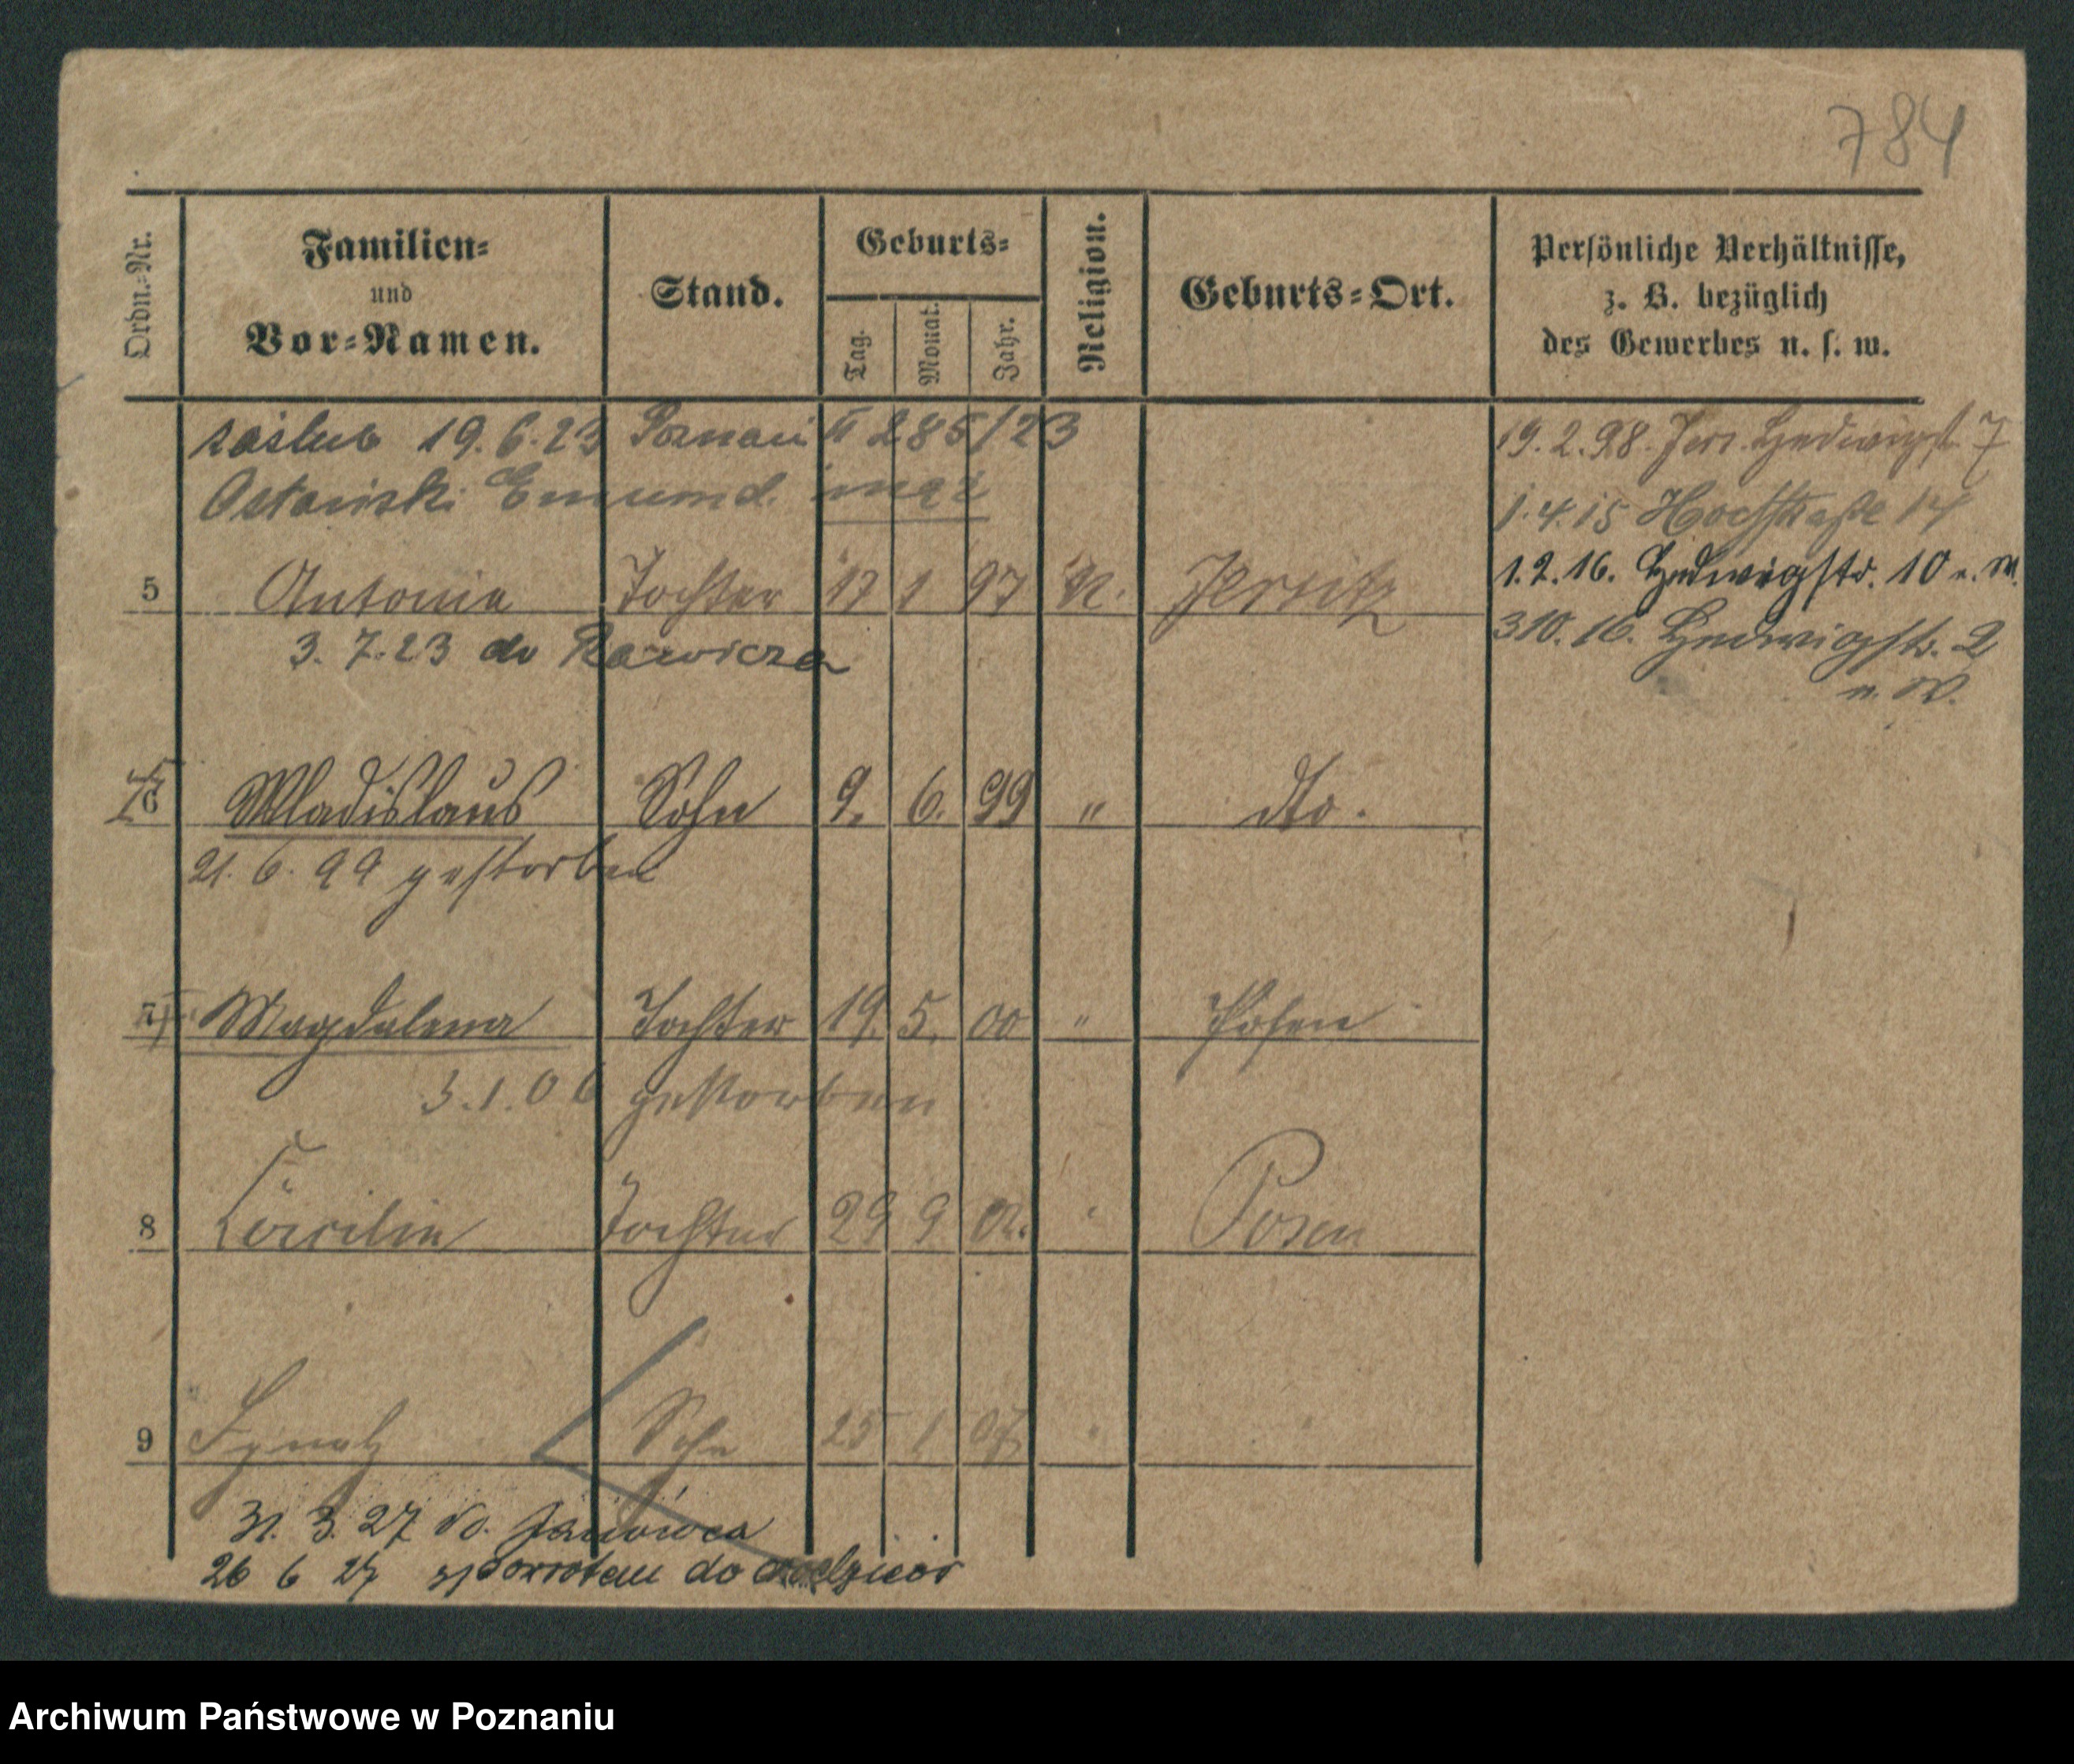 784
Ordn.=Nr.
Familien=
und
Vor=Namen.
Stand.
Geburts=
Tag.
Monat.
Jahr.
Religion.
Geburts=Ort.
Persönliche Verhältnisse,
z. B. bezüglich
des Gewerbes u. s. w.
zaślub 19.6.23 Poznań II 285/23
Emund. mąż
5 Antonie Tochter 17 1 97 K. Jersitz
3.7.23 do Rawicza
6 Wladislaus Sohn 9. 6. 99 " dto.
21.6.99 gestorben
7 Magdalena Tochter 19. 5. 00 " Posen
3.1.06 gestorben
8 Cäcilie Tochter 29 9 02. " Posen
9 Ignatz Sohn 25 1 07 " "
31. 3. 27 do. Janówca
26 6 27 z powrotem do
19.2.98. Jers. Hedwigstr. 7
1.4.15 Hochstraße 14
1.2.16. Hedwigstr. 10 n. W.
3.10.16. Hedwigstr. 2
n. W.
Archiwum Państwowe w Poznaniu